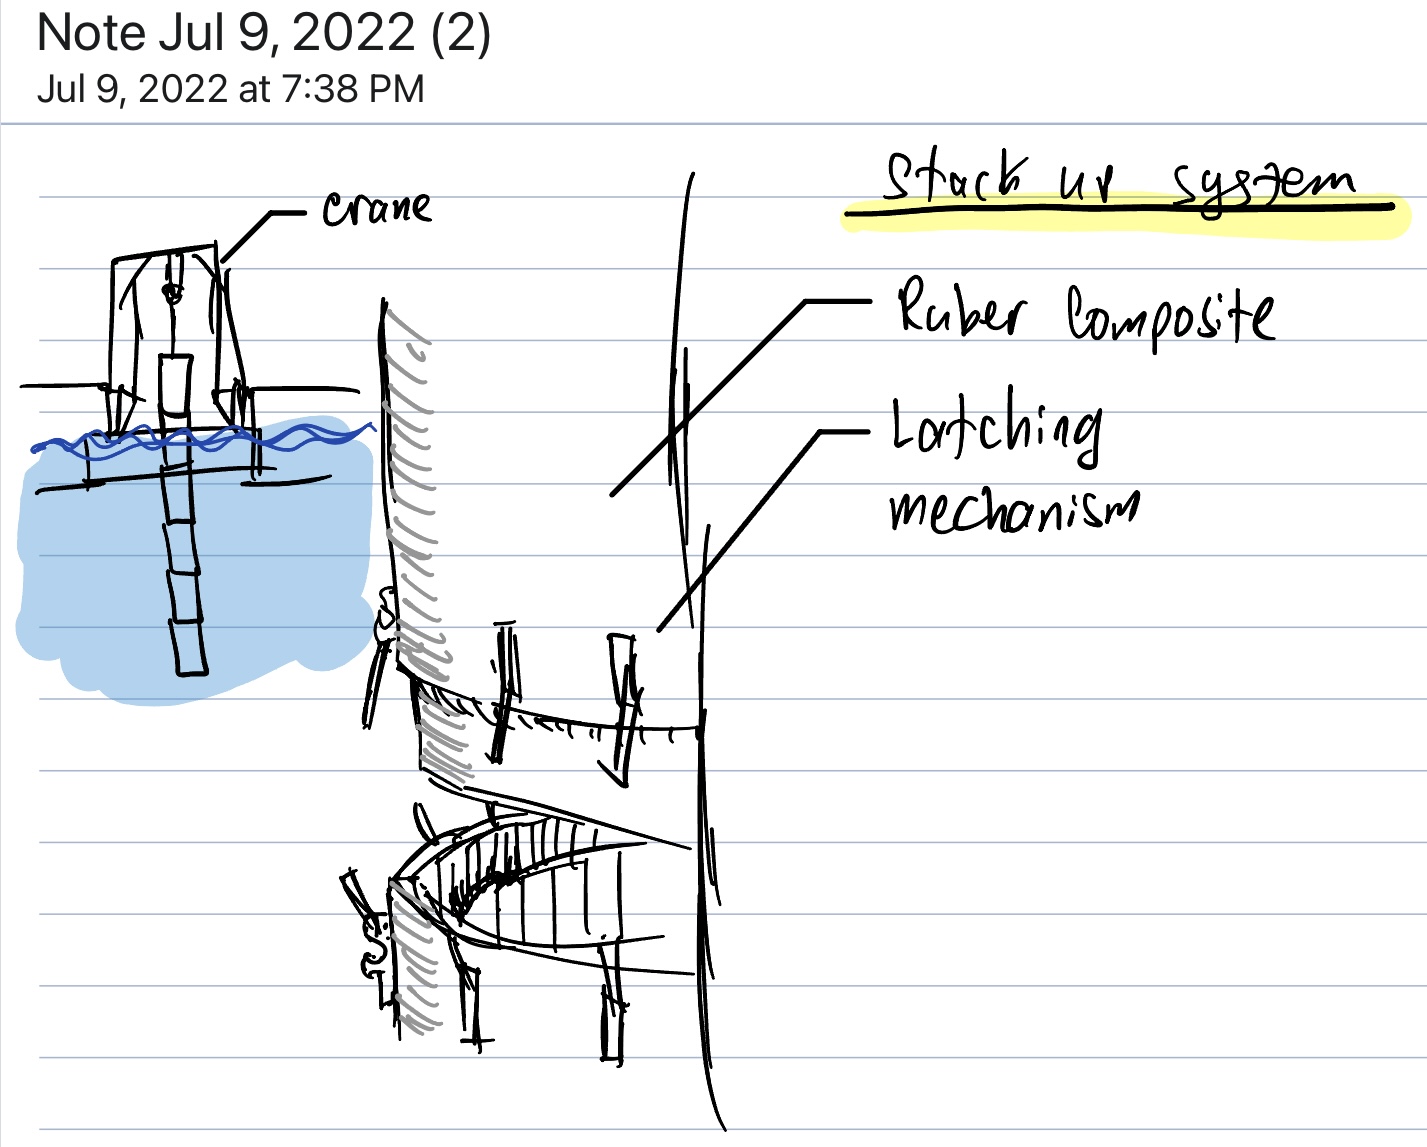 Note Jul 9, 2022 (2)
Jul 9, 2022 at 7:38 PM
Stack up system
crane
Ruber Composite
Latching
mechanism